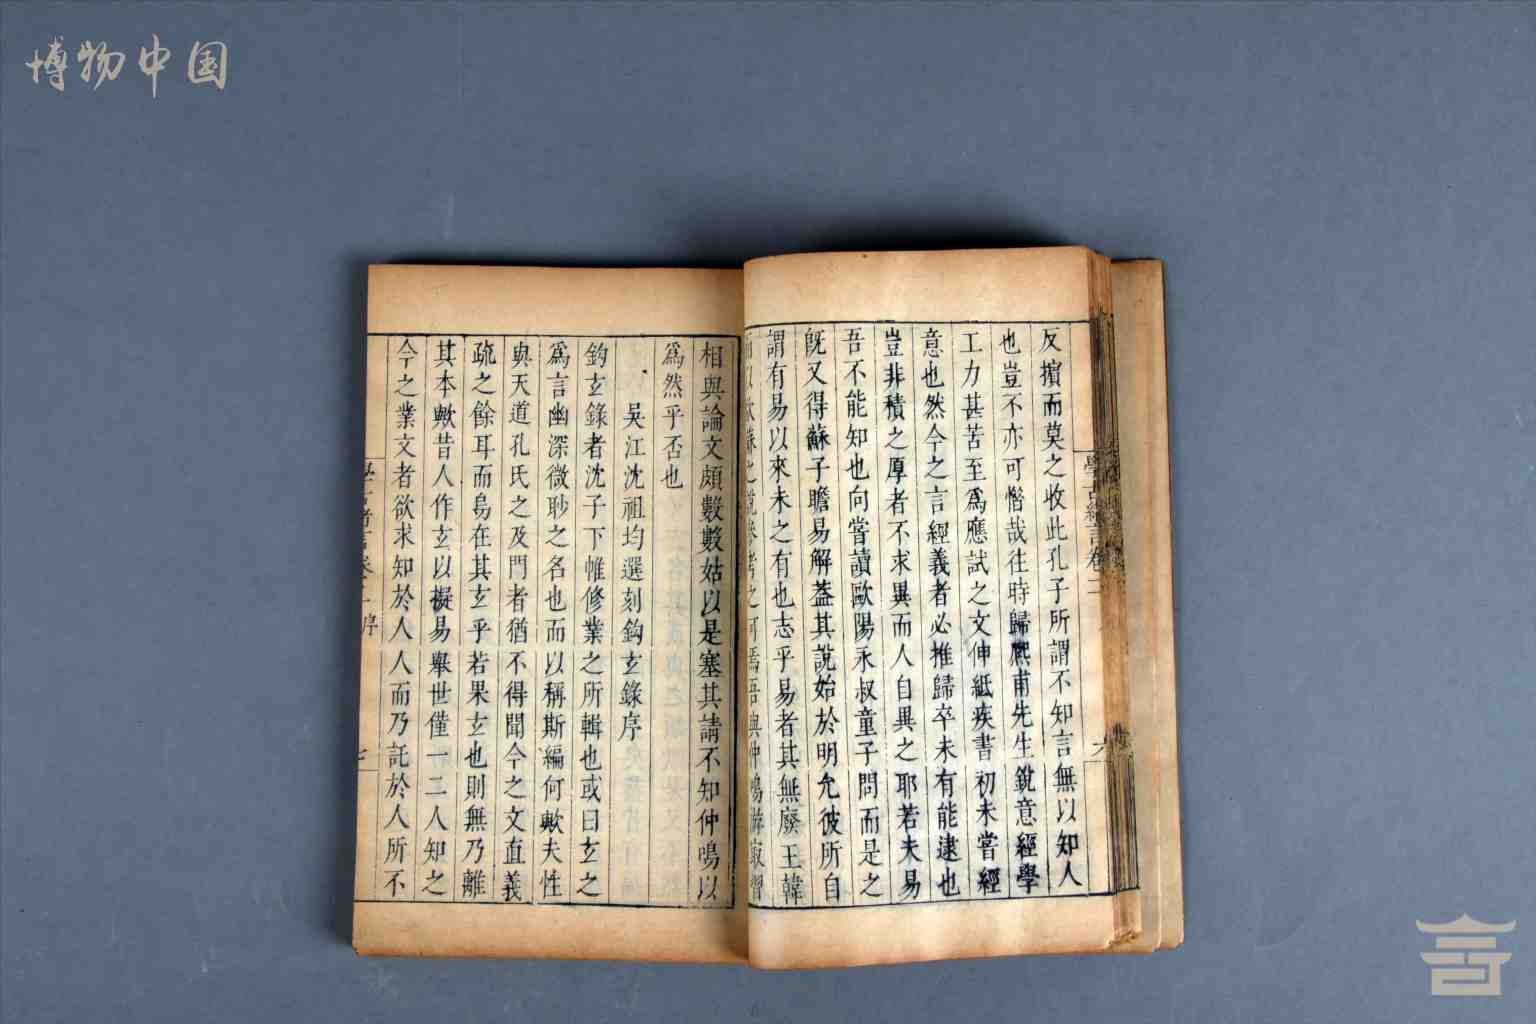 博物中国
反擯而莫之收此孔子所謂不知言無以知人
也豈不亦可慨哉往時歸熈甫先生銳意經學
工力甚苦至爲應試之文伸紙疾書初未嘗經
意也然今之言經義者必推歸卒未有能逮也
豈非積之厚者不求異而人自異之耶若夫易
吾不能知也向嘗讀歐陽永叔童子問而是之
既又得蘇子瞻易解葢其說始於明允彼所自
謂有易以來未之有也志乎易者其無廢王韓
而以歐蘇之說叅考之可焉吾與仲鳴游最習
相與論文頗數數姑以是塞其請不知仲鳴以
爲然乎否也
吳江沈祖均選刻鈎玄錄序
鈎玄錄者沈子下帷修業之所輯也或曰玄之
爲言幽深微眇之名也而以稱斯編何歟夫性
與天道孔氏之及門者猶不得聞今之文直義
疏之餘耳而烏在其玄乎若果玄也則無乃離
其本歟昔人作玄以擬易舉世僅一二人知之
今之業文者欲求知於人人而乃託於人所不
七